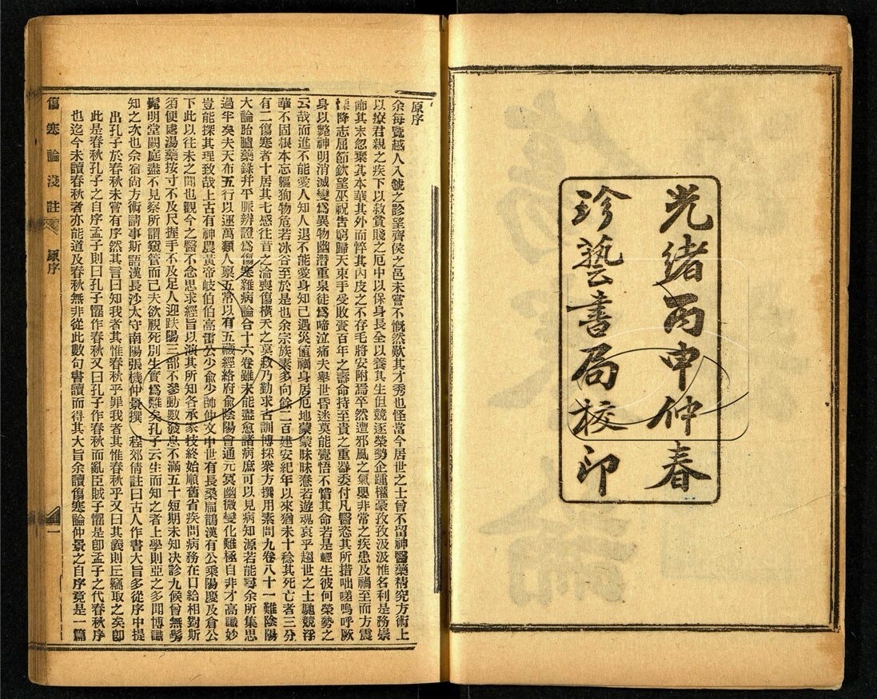 光緒丙申仲春
珍藝書局校印
原序
余每覽越人入虢之診望齊侯之色未嘗不慨然歎其才秀也怪當今居世之士曾不留神醫藥精究方術上
以療君親之疾下以救貧賤之厄中以保身長全以養其生但競逐榮勢企踵權豪孜孜汲汲惟名利是務崇
飾其末忽棄其本華其外而悴其內皮之不存毛將安附焉卒然遭邪風之氣嬰非常之疾患及禍至而方震
慄降志屈節欽望巫祝告窮歸天束手受敗賫百年之壽命持至貴之重器委付凡醫恣其所措咄嗟嗚呼厥
身以斃神明消滅變爲異物幽潛重泉徒爲啼泣痛夫舉世昏迷莫能覺悟不惜其命若是輕生彼何榮勢之
云哉而進不能愛人知人退不能愛身知己遇災値禍身居厄地蒙蒙昧昧惷若遊魂哀乎趨世之士馳競浮
華不固根本忘軀狥物危若冰谷至於是也余宗族素多向餘二百建安紀年以來猶未十稔其死亡者三分
有二傷寒者十居其七感往昔之淪喪傷橫夭之莫救乃勤求古訓博採衆方撰用素問九卷八十一難陰陽
大論胎臚藥錄并平脈辨證爲傷寒雜病論合十六卷雖未能盡愈諸病庶可以見病知源若能尋余所集思
過半矣夫天布五行以運萬類人禀五常以有五臟經絡府俞陰陽會通元冥幽微變化難極自非才高識妙
豈能探其理致哉上古有神農黃帝岐伯伯高雷公少俞少師仲文中世有長桑扁鵲漢有公乘陽慶及倉公
下此以往未之聞也觀今之醫不念思求經旨以演其所知各承家技終始順舊省疾問病務在口給相對斯
須便處湯藥按寸不及尺握手不及足人迎趺陽三部不參動數發息不滿五十短期未知決診九候曾無髣
髴明堂闕庭盡不見察所謂窺管而已夫欲視死別生實爲難矣孔子云生而知之者上學則亞之多聞博識
知之次也余宿尚方術請事斯語漢長沙太守南陽張機仲景撰 程郊倩註曰古人作書大旨多從序中提
出孔子於春秋未嘗有序然其言曰知我者其惟春秋乎罪我者其惟春秋乎又曰其義則丘竊取之矣即
此是春秋孔子之自序孟子則曰孔子懼作春秋又曰孔子作春秋而亂臣賊子懼是即孟子之代春秋序
也迄今未讀春秋者亦能道及春秋無非從此數句書讀而得其大旨余讀傷寒論仲景之自序竟是一篇
傷寒論淺註 原序 一